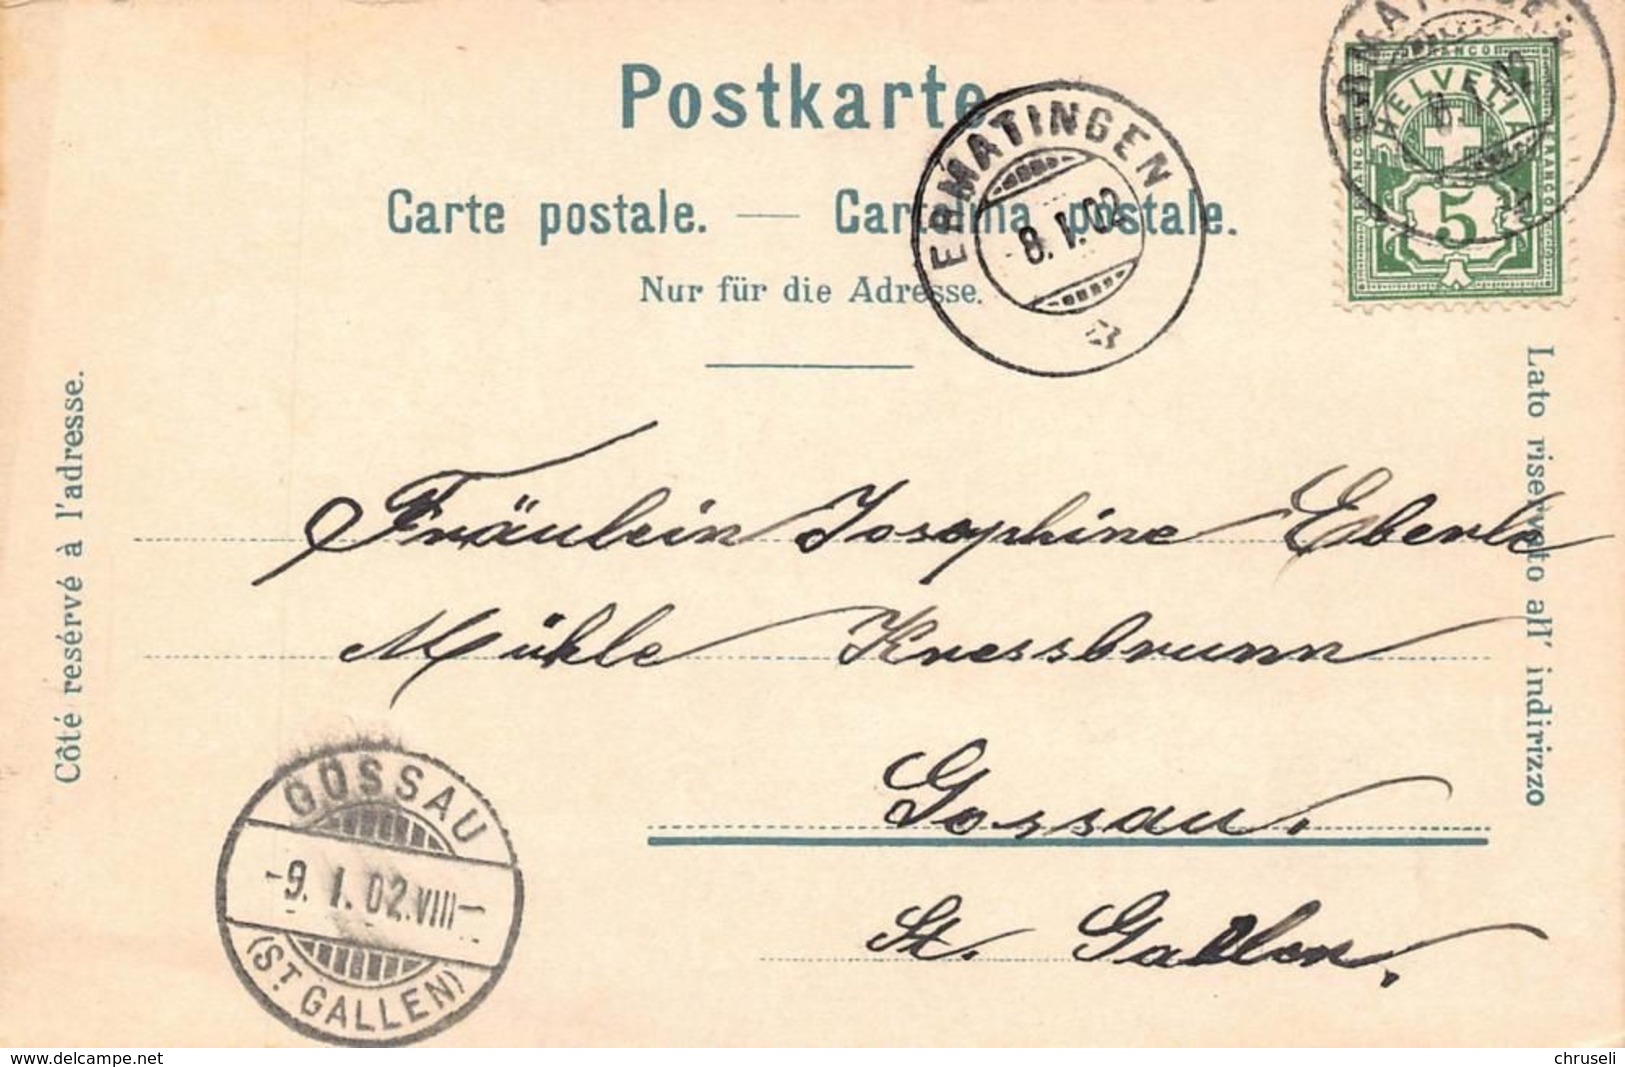 Postkarte
Carte postale. — Cartolina postale.
Nur für die Adresse.
ERMATINGEN
8. I. 02
ERMATINGEN
FRANCO
HELVETIA
FRANCO
5
Côté resérvé à l'adresse.
Lato riservato all' indirizzo
Fräulein Josephine Eberle
Mühle Kressbrunn
Gossau.
St. Gallen.
GOSSAU
-9. I. 02. VIII-
(ST. GALLEN)
www.delcampe.net
chruseli